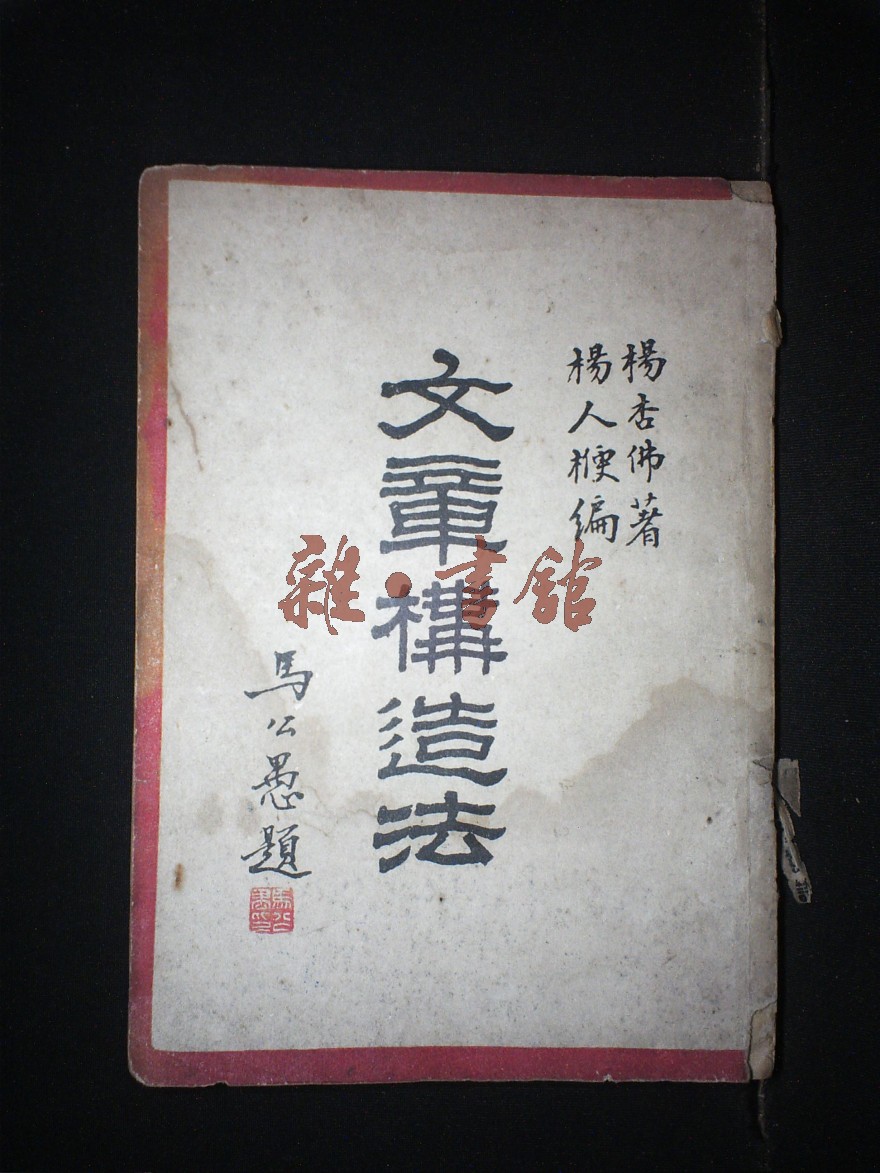 楊杏佛著
楊人楩編
文章構造法
馬公愚題
雜·書館